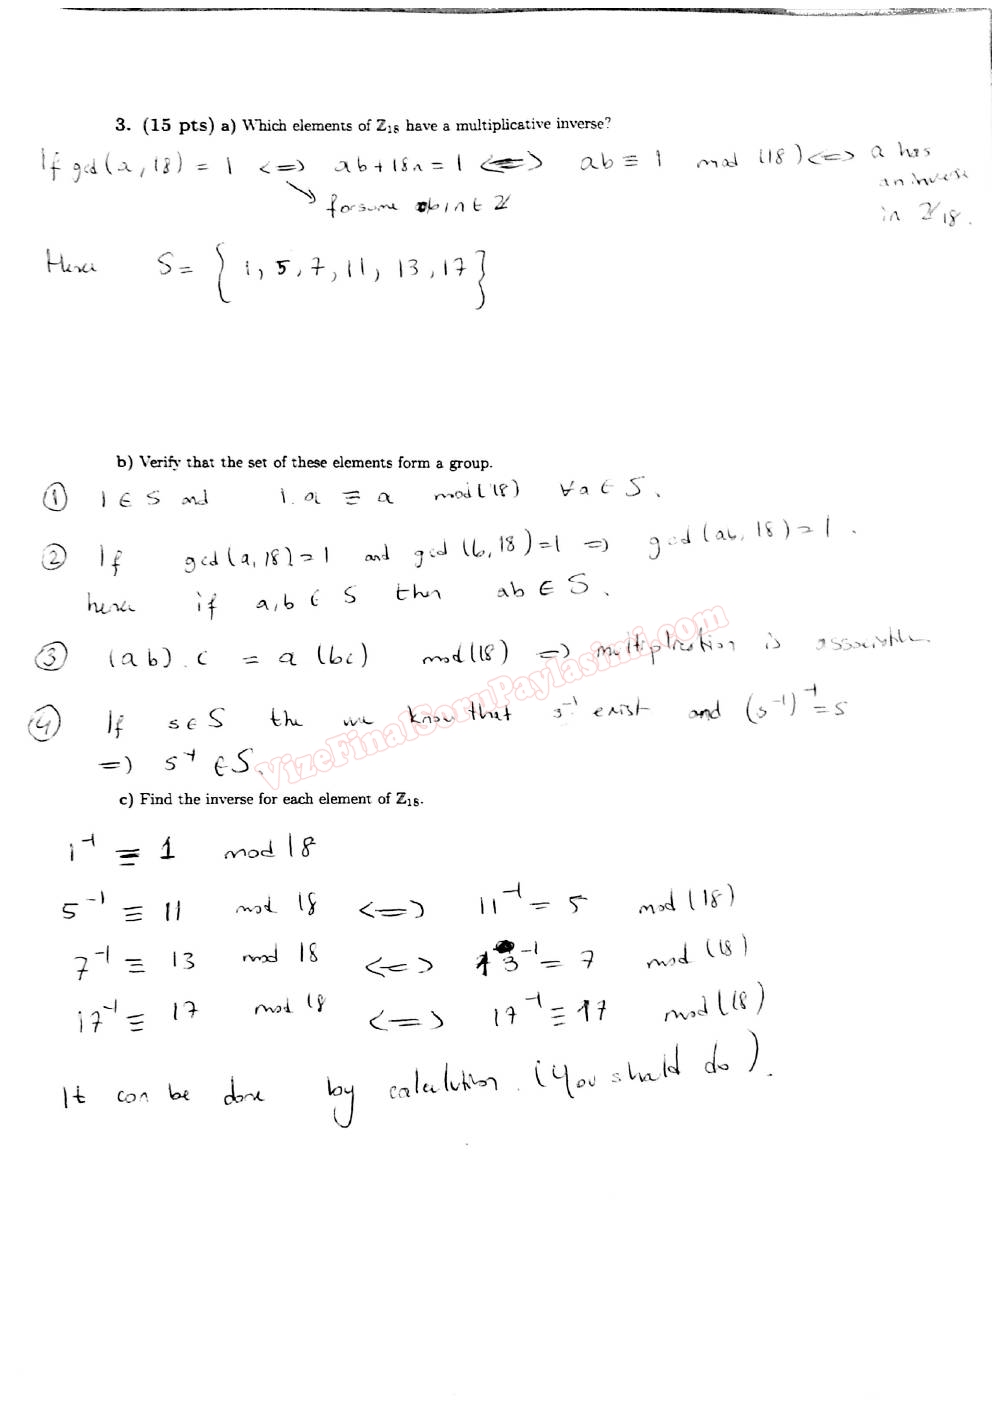 3. (15 pts) a) Which elements of ℤ₁₈ have a multiplicative inverse?
If gcd(a, 18) = 1 <=> ab+18n = 1 <=> ab ≡ 1 mod (18) <=> a has
an inverse
in ℤ₁₈.
for some b int ℤ
Hence S = { 1, 5, 7, 11, 13, 17 }
b) Verify that the set of these elements form a group.
① 1 ∈ S and 1.a ≡ a mod(18) ∀a ∈ S.
② If gcd(a, 18) = 1 and gcd(b, 18) = 1 => gcd(ab, 18) = 1.
hence if a,b ∈ S then ab ∈ S.
③ (ab).c = a(bc) mod(18) => multiplication is
④ If s∈S the we know that s⁻¹ exist and (s⁻¹)⁻¹=s
=> s⁻¹ ∈ S.
VizeFinalSoruPaylasimi.com
c) Find the inverse for each element of ℤ₁₈.
1⁻¹ ≡ 1 mod 18
5⁻¹ ≡ 11 mod 18 <=> 11⁻¹ = 5 mod (18)
7⁻¹ ≡ 13 mod 18 <=> 13⁻¹ = 7 mod (18)
17⁻¹ ≡ 17 mod 18 <=> 17⁻¹ ≡ 17 mod (18)
It can be done by calculation. (You should do).